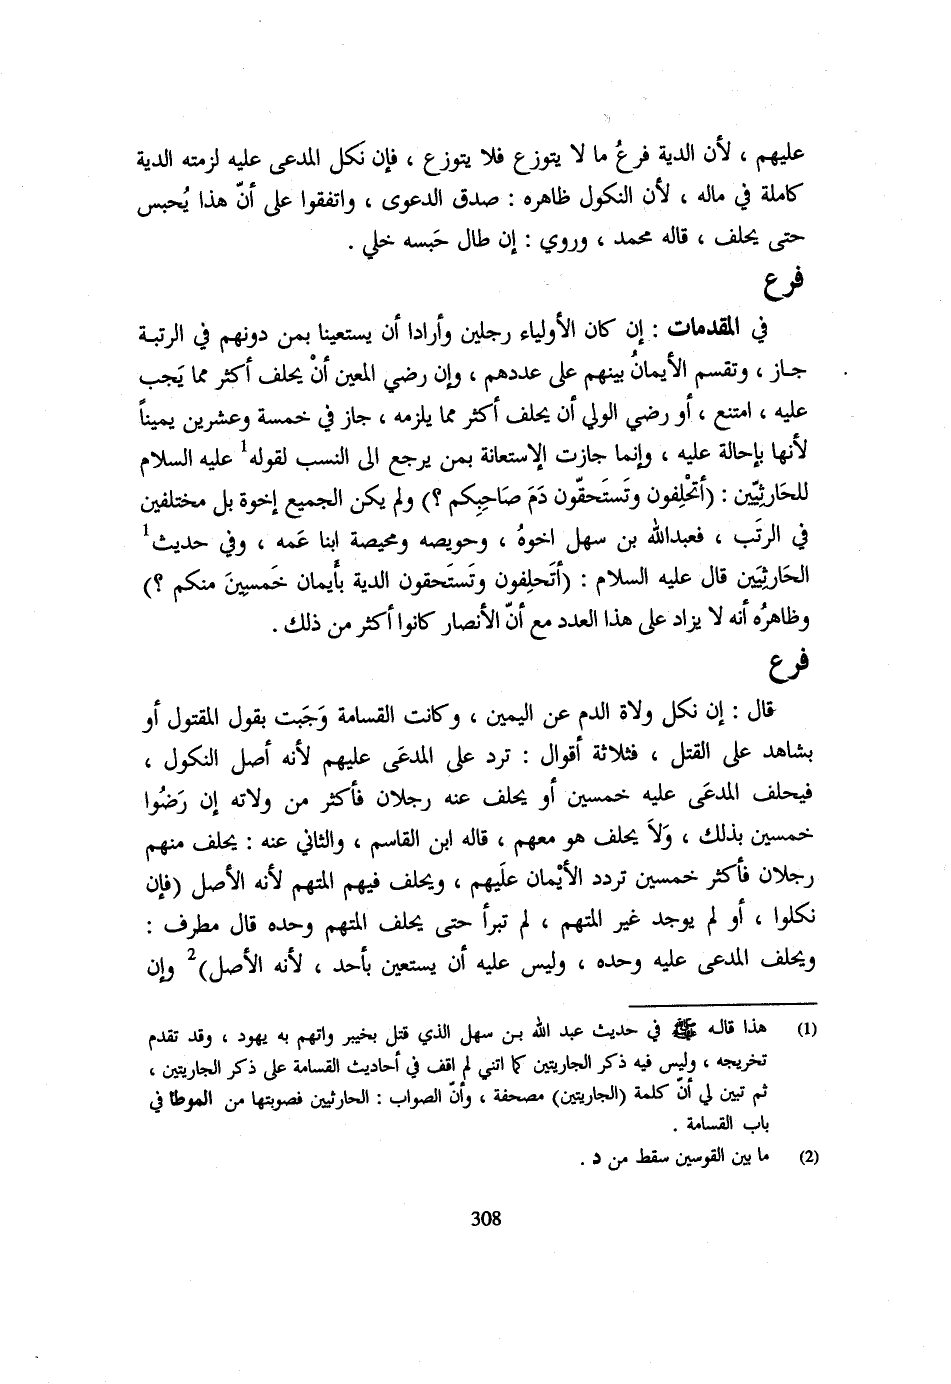 عليهم ، لأن الدية فرعُ ما لا يتوزع فلا يتوزع ، فإن نكل المدعى عليه لزمته الدية
كاملة في ماله ، لأن النكول ظاهره : صدق الدعوى ، واتفقوا على أنّ هذا يُحبس
حتى يحلف ، قاله محمد ، وروي : إن طال حَبسه خلي .
فرع
في المقدمات : إن كان الأولياء رجلين وأرادا أن يستعينا بمن دونهم في الرتبة
جاز ، وتقسم الأيمانُ بينهم على عددهم ، وإن رضي المعين أنْ يحلف أكثر مما يَجب
عليه ، امتنع ، أو رضي الولي أن يحلف أكثر مما يلزمه ، جاز في خمسة وعشرين يميناً
لأنها بإحالة عليه ، وإنما جازت الإستعانة بمن يرجع الى النسب لقوله1 عليه السلام
للحَارثِيّين : (أتحْلِفون وتَستَحقّون دَمَ صَاحِبِكم ؟) ولم يكن الجميع إخوة بل مختلفين
في الرتَب ، فعبدالله بن سهل اخوهُ ، وحويصه ومحيصة ابنا عَمه ، وفي حديث1
الحَارثِيَين قال عليه السلام : (أتَحلِفون وتَستَحقون الدية بأيمان خَمسينَ منكم ؟)
وظاهرُه أنه لا يزاد على هذا العدد مع أنّ الأنصار كانوا أكثر من ذلك .
فرع
قال : إن نكل ولاة الدم عن اليمين ، وكانت القسامة وَجَبت بقول المقتول أو
بشاهد على القتل ، فثلاثة أقوال : ترد على المدعَى عليهم لأنه أصل النكول ،
فيحلف المدعَى عليه خمسين أو يحلف عنه رجلان فأكثر من ولاته إن رَضُوا
خمسين بذلك ، وَلاَ يحلف هو معهم ، قاله ابن القاسم ، والثاني عنه : يحلف منهم
رجلان فأكثر خمسين تردد الأيْمان علَيهم ، ويحلف فيهم المتهم لأنه الأصل (فإن
نكلوا ، أو لم يوجد غير المتهم ، لم تبرأ حتى يحلف المتهم وحده قال مطرف :
ويحلف المدعى عليه وحده ، وليس عليه أن يستعين بأحد ، لأنه الأصل)2 وإن
(1) هذا قاله ﷺ في حديث عبد الله بن سهل الذي قتل بخيبر واتهم به يهود ، وقد تقدم
تخريجه ، وليس فيه ذكر الجاريتين كما انني لم اقف في أحاديث القسامة على ذكر الجاريتين ،
ثم تبين لي أنّ كلمة (الجاريتين) مصحفة ، وأنّ الصواب : الحارثيين فصوبتها من الموطأ في
باب القسامة .
(2) ما بين القوسين سقط من د .
308